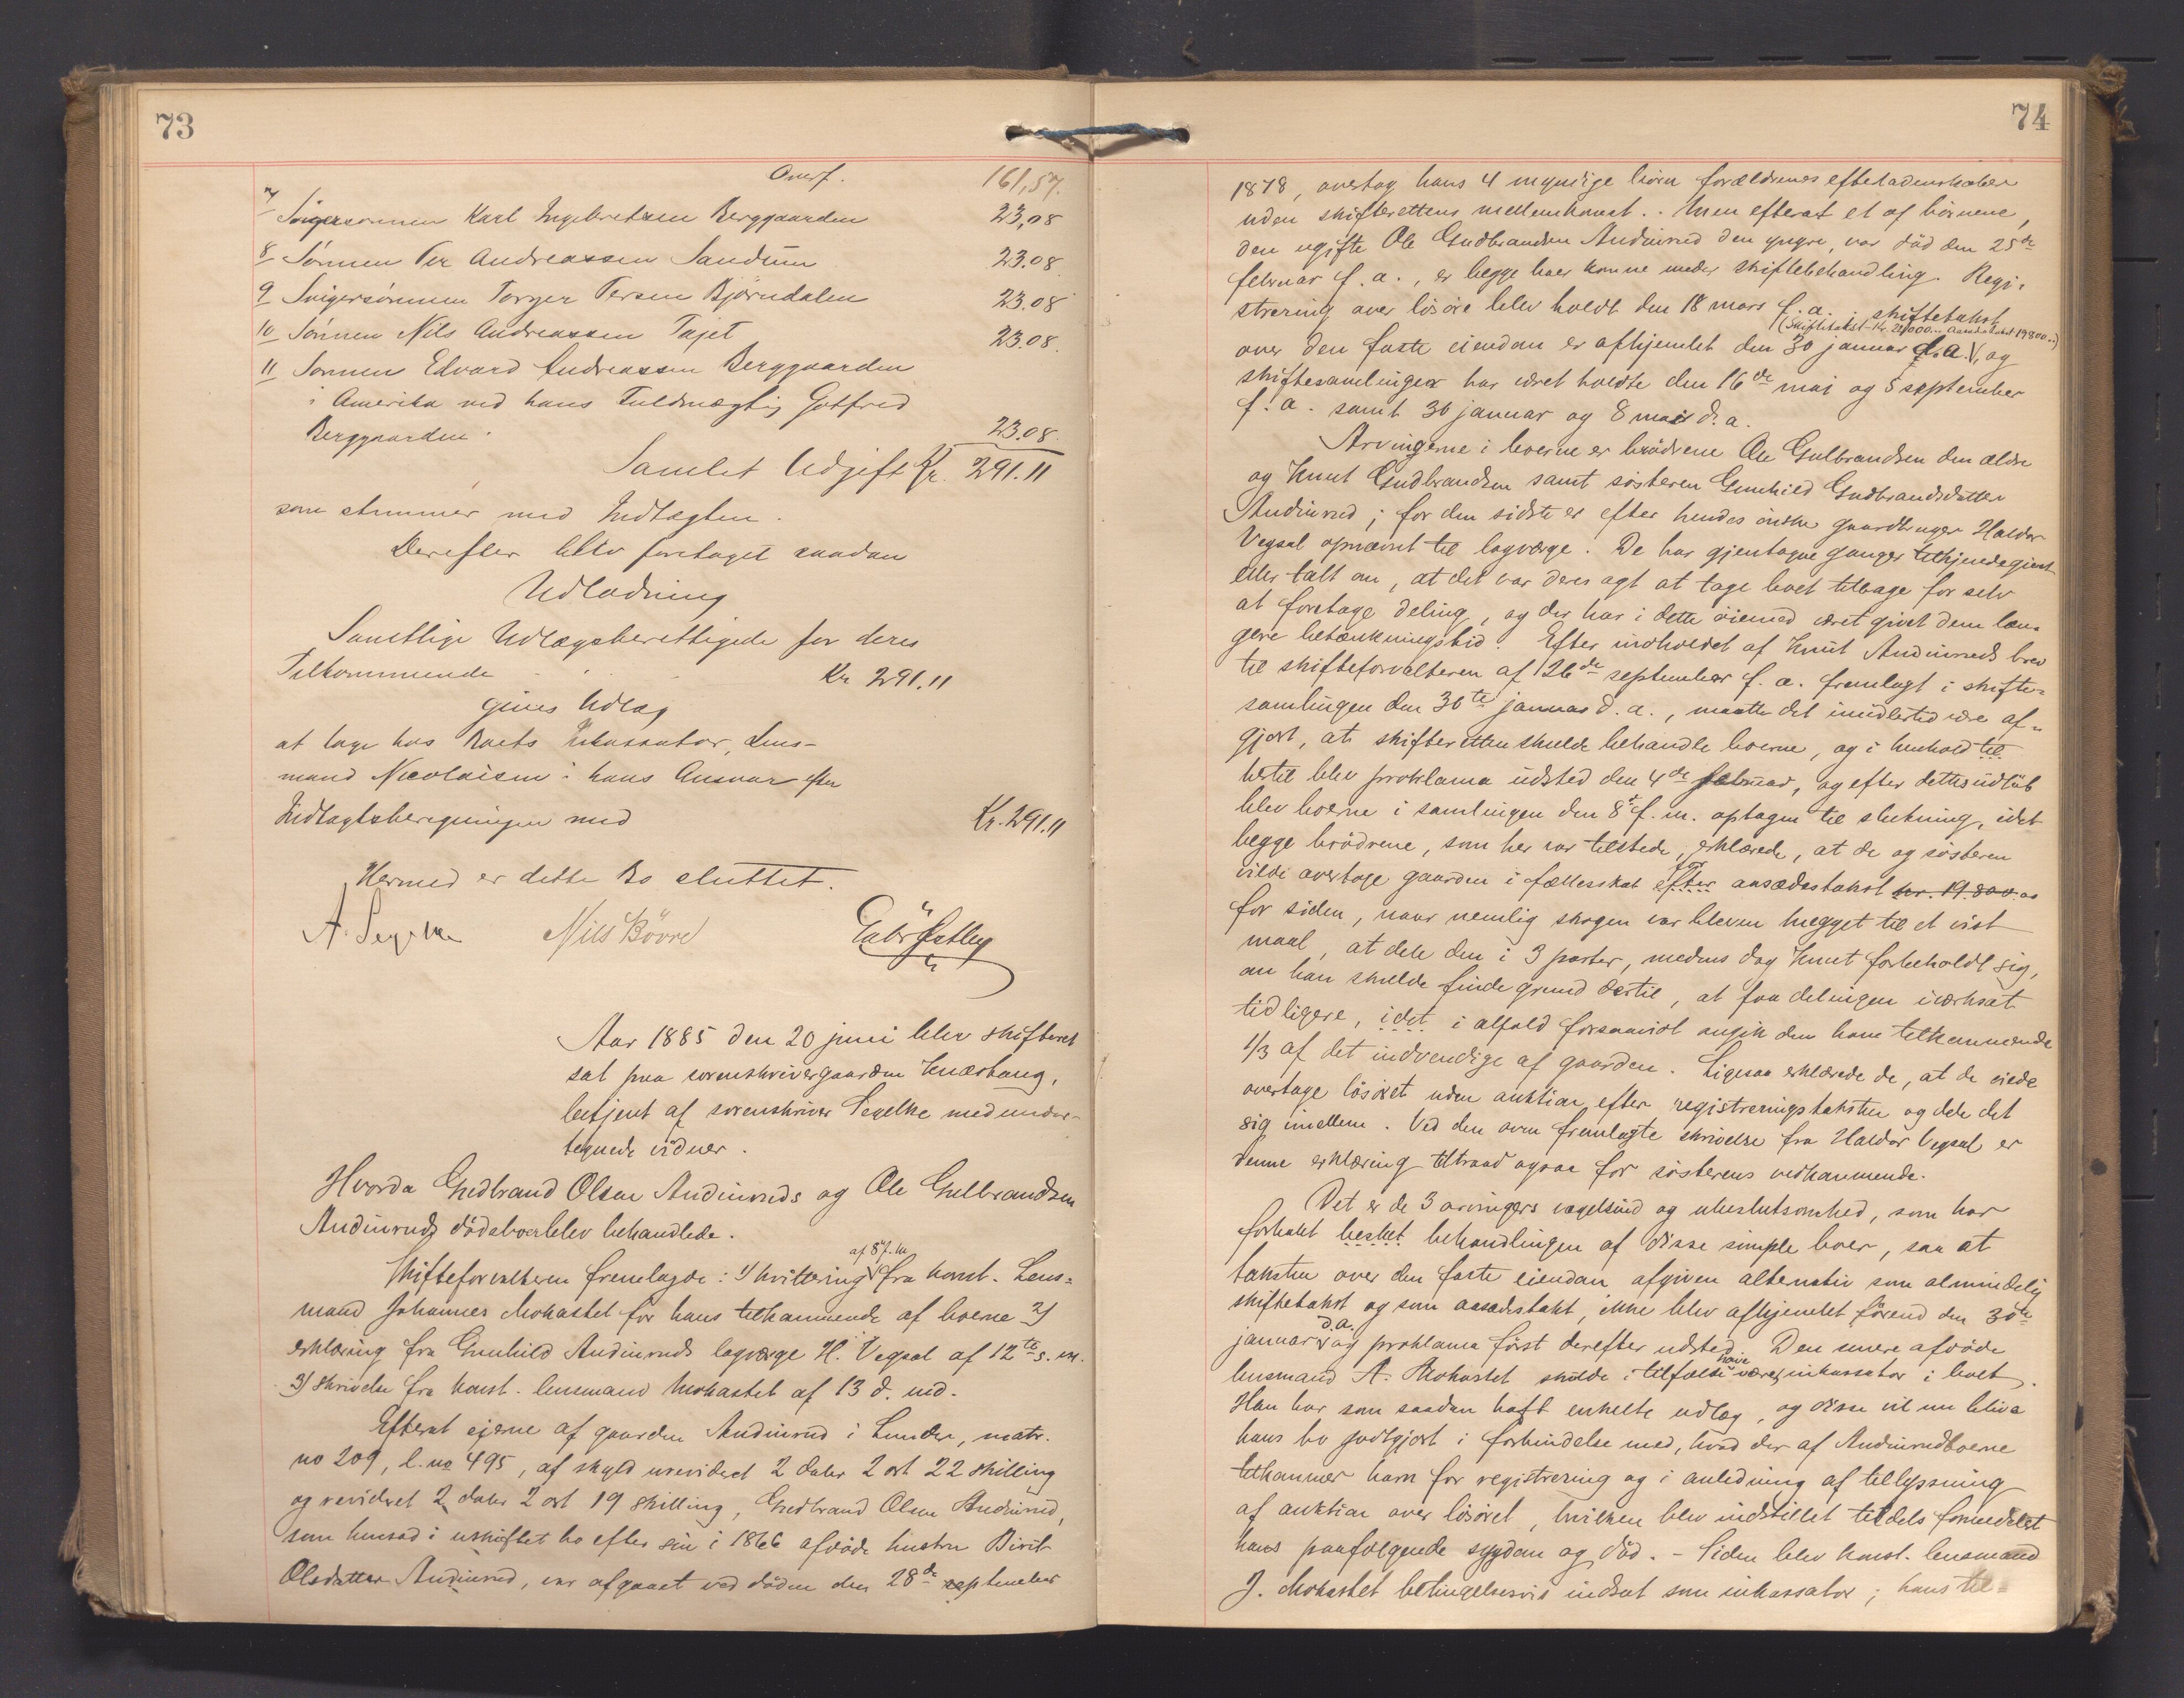 73
Overf. 161,57.
7 Svigersønnen Karl Ingebretsen Berggaarden 23,08
8 Sønnen Per Andreassen Sandum 23.08
9 Svigersønnen Torger Persen Bjørndalen 23.08
10 Sønnen Nils Andreassen Tajet 23.08.
11 Sønnen Edvard Andreassen Berggaarden
i Amerika ved hans Fuldmægtig Gotfred
Berggaarden 23.08.
Samlet Udgift Kr. 291.11
som stemmer med Indtægten.
Derefter blev foretaget saadan
Udlodning
Samtlige Udlægsberettigede for deres
Tilkommende Kr 291.11
gives Udlæg
at tage hos Boets Inkassator, Lens-
mand Nicolaisen i hans Ansvar efter
Indtægtsberegningen med Kr. 291.11
Hermed er dette Bo sluttet.
A. Segelke Nils Bövre
Aar 1885 den 20 juni blev skifteret
sat paa sorenskrivergaarden Knæstang,
betjent af sorenskriver Segelke med under-
tegnede vidner.
Hvorda Gudbrand Olsen Audinruds og Ole Gulbrandsen
Audinruds dödsboer blev behandlede.
af 8 f. m.
Skifteforvalteren fremlagde: 1) kvittering fra konst. Lens-
mand Johannes Mokastet for hans tilkommende af boerne 2)
erklæring fra Gunhild Audinruds lagværge H. Vegsal af 12te s. m.
3) skrivelse fra konst. lensmand Mokastet af 13 d. md.
Efterat ejerne af gaarden Audinrud i Lunder, matr.
no 209, l. no 495, af skyld urevideret 2 daler 2 ort 22 skilling
og revideret 2 daler 2 ort 19 skilling, Gudbrand Olsen Audinrud,
som hensad i uskiftet bo efter sin i 1866 afdöde hustru Birit
Olsdatter Audinrud, var afgaaet ved döden den 28de september
74
1878, overtog hans 4 myndige börn forældrenes efterladenskaber
uden skifterettens mellemkomst. Men efterat et af börnene,
den ugifte Ole Gudbrandsen Audinrud den yngre, var död den 25de
februar f. a., er begge boer komne under skiftebehandling. Regi-
strering over lösöre blev holdt den 18 mars f. a.; skiftetakst
(Skiftetakst kr. 24000.. Aasædestakst 19800..)
over den faste eiendom er afhjemlet den 30 januar d. a., og
skiftesamlinger har været holdte den 16de mai og 5 september
f. a. samt 30 januar og 8 mai d. a.
Arvingerne i boerne er brödrene Ole Gulbrandsen den ældre
og Knut Gudbrandsen samt sösteren Gunhild Gudbrandsdatter
Audinrud; for den sidste er efter hendes önske gaardbruger Haldor
Vegsal opnævnt til lagværge. De har gjentagne ganger tilkjendegivet
eller talt om, at det var deres agt at tage boet tilbage for selv
at foretage deling, og der har i dette öiemed været givet dem læn-
gere betænkningstid. Efter indholdet af Knut Audinruds brev
til skifteforvalteren af 126de september f. a. fremlagt i skifte-
samlingen den 30te januar d. a., maatte det imidlertid være af-
gjort, at skifteretten skulde behandle boerne, og i henhold til
hertil blev proklama udsted den 4de februar, og efter dettes udlöb
blev boerne i samlingen den 8de f. m. optagen til slutning, idet
begge brödrene, som her var tilstede, erklærede, at de og sösteren
for
vilde overtage gaarden i fællesskab efter aasædestakst kr. 19.800.00
for siden, naar nemlig skogen var bleven hugget til et vist
maal, at dele den i 3 parter, medens dog Knut forbeholdt sig,
om han skulde finde grund dertil, at faa delingen iverksat
tidligere, idet i alfald forsaavidt angik den ham tilkommende
1/3 af det indvendige af gaarden. Ligesaa erklærede de, at de vilde
overtage lösöret uden auktion efter registreringstaksten og dele det
sig imellem. Ved den oven fremlagte skrivelse fra Haldor Vegsal er
denne erklæring tiltraad ogsaa for sösterens vedkommende.
Det er de 3 arvingers vægelsind og ubeslutsomhed, som har
forhalet heslet behandlingen af disse simple boer, saa at
taksten over den faste eiendom afgiven alternativ som almindelig
skiftetakst og som aasædestakst, ikke blev afhjemlet förend den 30te
d. a.
januar og proklama först derefter udsted. Den senere afdöde
have
lensmand A. Mokastet skulde i tilfælde været inkassator i boet.
Han har som saadan haft enkelte udlæg, og disse vil nu blive
hans bo godtgjort i forbindelse med, hvad der af Audinrudboerne
tilkommer ham for registrering og i anledning af tillysning
af auktion over lösöret, hvilken blev indstillet tildels formedelst
hans paafölgende sygdom og död. – Siden blev konst. lensmand
J. Mokastet betingelsesvis indsat som inkassator; hans til-